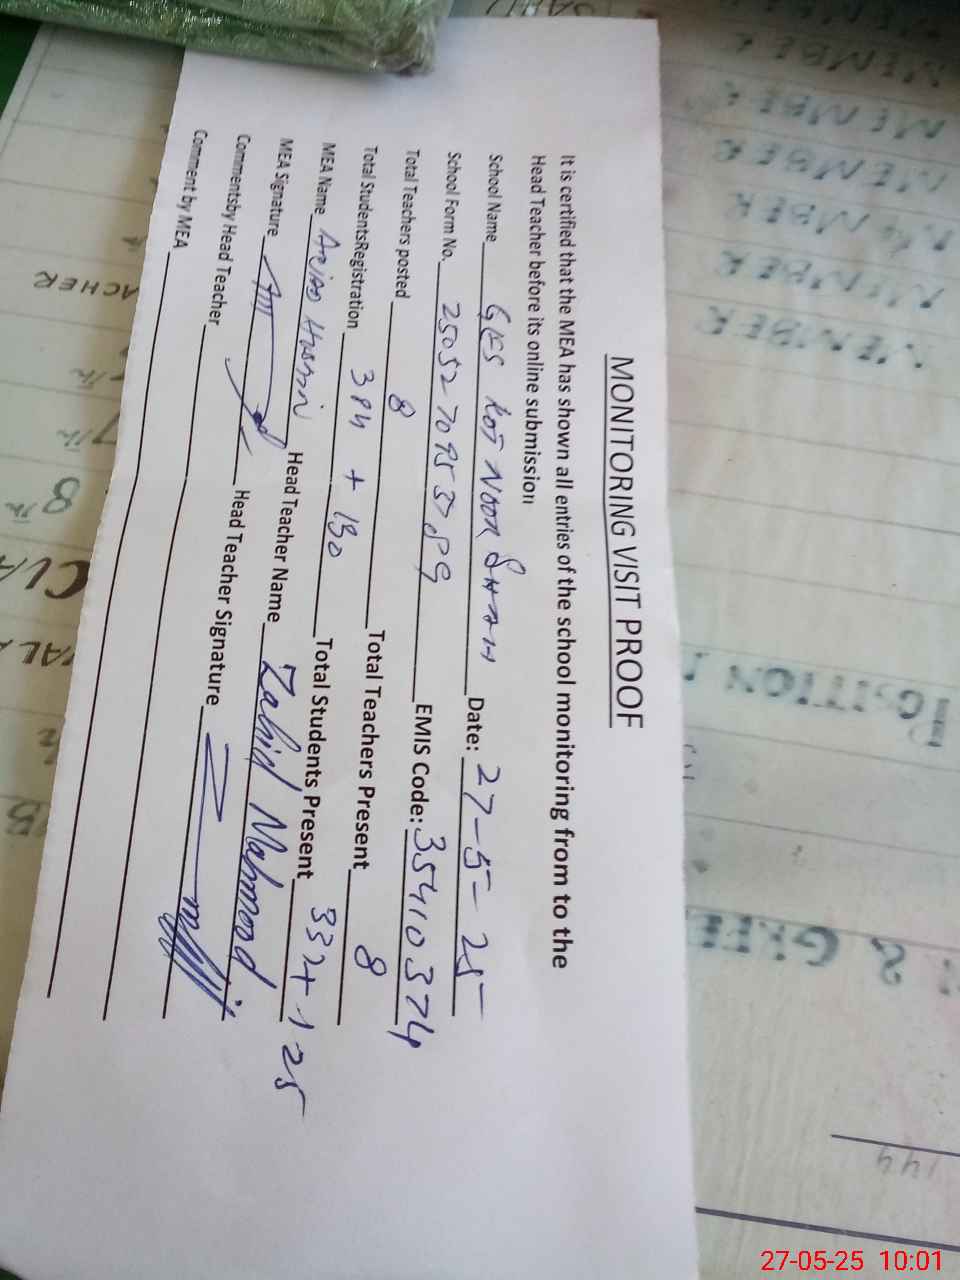 MONITORING VISIT PROOF
It is certified that the MEA has shown all entries of the school monitoring from to the
Head Teacher before its online submission
School Name GES KOT NOOR SHAH Date: 27-5-25
School Form No. EMIS Code: 35410374
Total Teachers posted 8 Total Teachers Present 8
Total StudentsRegistration 384 + 130 Total Students Present 332+125
MEA Name Head Teacher Name Zahid Mahmood
MEA Signature Head Teacher Signature
Commentsby Head Teacher
Comment by MEA
MEMBER
MEMBER
MEMBER
MEMBER
MEMBER
MEMBER
POSITION
& GREE
144
8th
7th
27-05-25 10:01